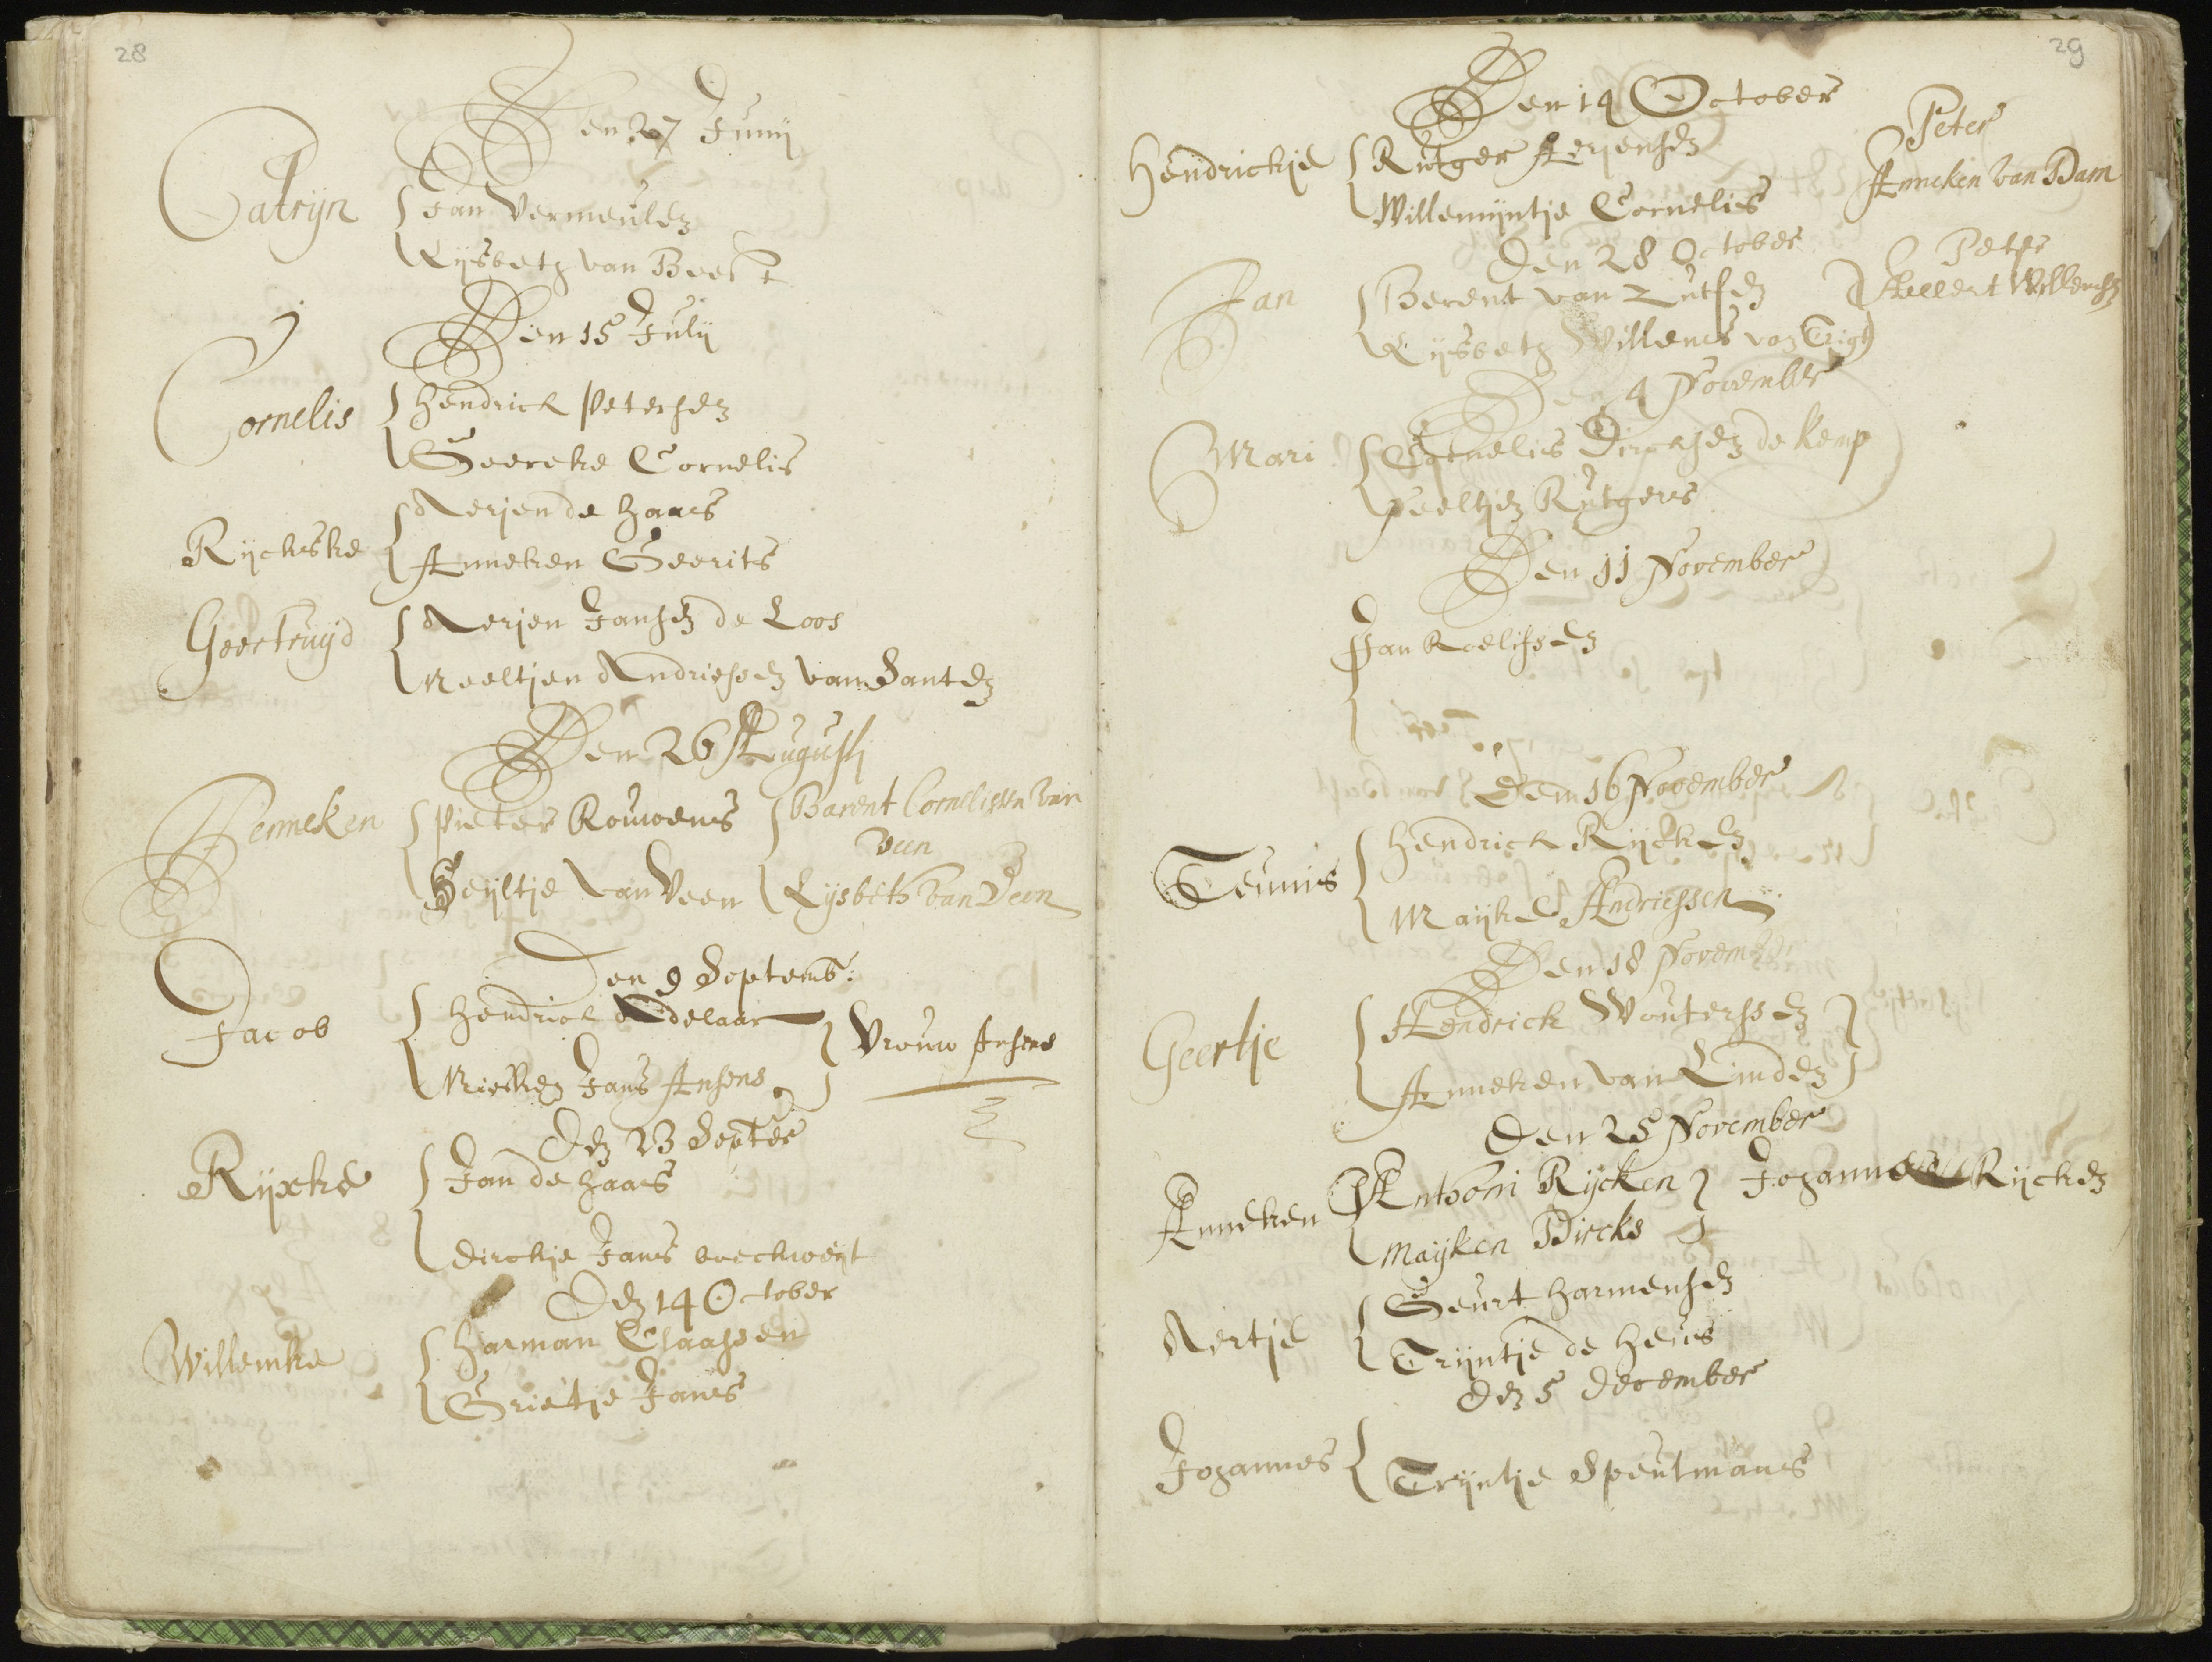 28
Den 27 Junij
Catrijn Jan Vermeulen
Lijsbeth van Beest
Den 15 Julij
Cornelis Hendrick Petersen
Geereke Cornelis
Aerjen de Haas
Rijckske Anneken Geerits
Geertruijd Aerjen Jansen de Loos
Neeltjen Andriessen van Santen
Den 26 Augusti
Jenneken Pieter Rouwens Barent Cornelissen van
Veen
Heijltje van Veen Lijsbeth van Veen
Den 9 Septemb:
Jacob Hendrick Adelaar
Vrouw Ansens
Jans Ansens
Den 23 Septer
Rijxke Jan de Haas
Dirckje Jans
Den 14 October
Willemke Harman Claassen
Grietje Jans
29
Den 14 October
Peter
Hendrickje Rutger Aerjensen
Anneken van Dam
Willemijntje Cornelis
Den 28 October
Peter
Jan Berent van Zutfen Aellert Willemsen
Lijsbeth Willems van Trigt
Den 4 November
Mari Cornelis Dircksen de Kemp
Peeltjen Rutgers
Den 11 November
Jan Roelofsen
Den 16 November
Hendrick Rijcken
Teunis
Maijke Andriessen
Den 18 November
Hendrick Woutersen
Geertje
Anneken van Linden
Den 25 November
Anneken Anthoni Rijcken Johannes Rijcken
Maijken Dircks
Geurt Harmensen
Aertje
Trijntje de Heus
Den 5 December
Johannes Trijntje Speutmans